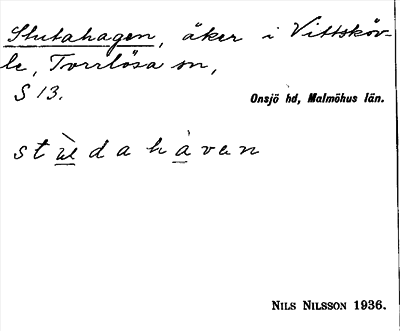 Stutahagen, åker i Vittsköv-
le, Torrlösa sn,
S 13.
Onsjö hd, Malmöhus län.
stùldahàven
NILS NILSSON 1936.